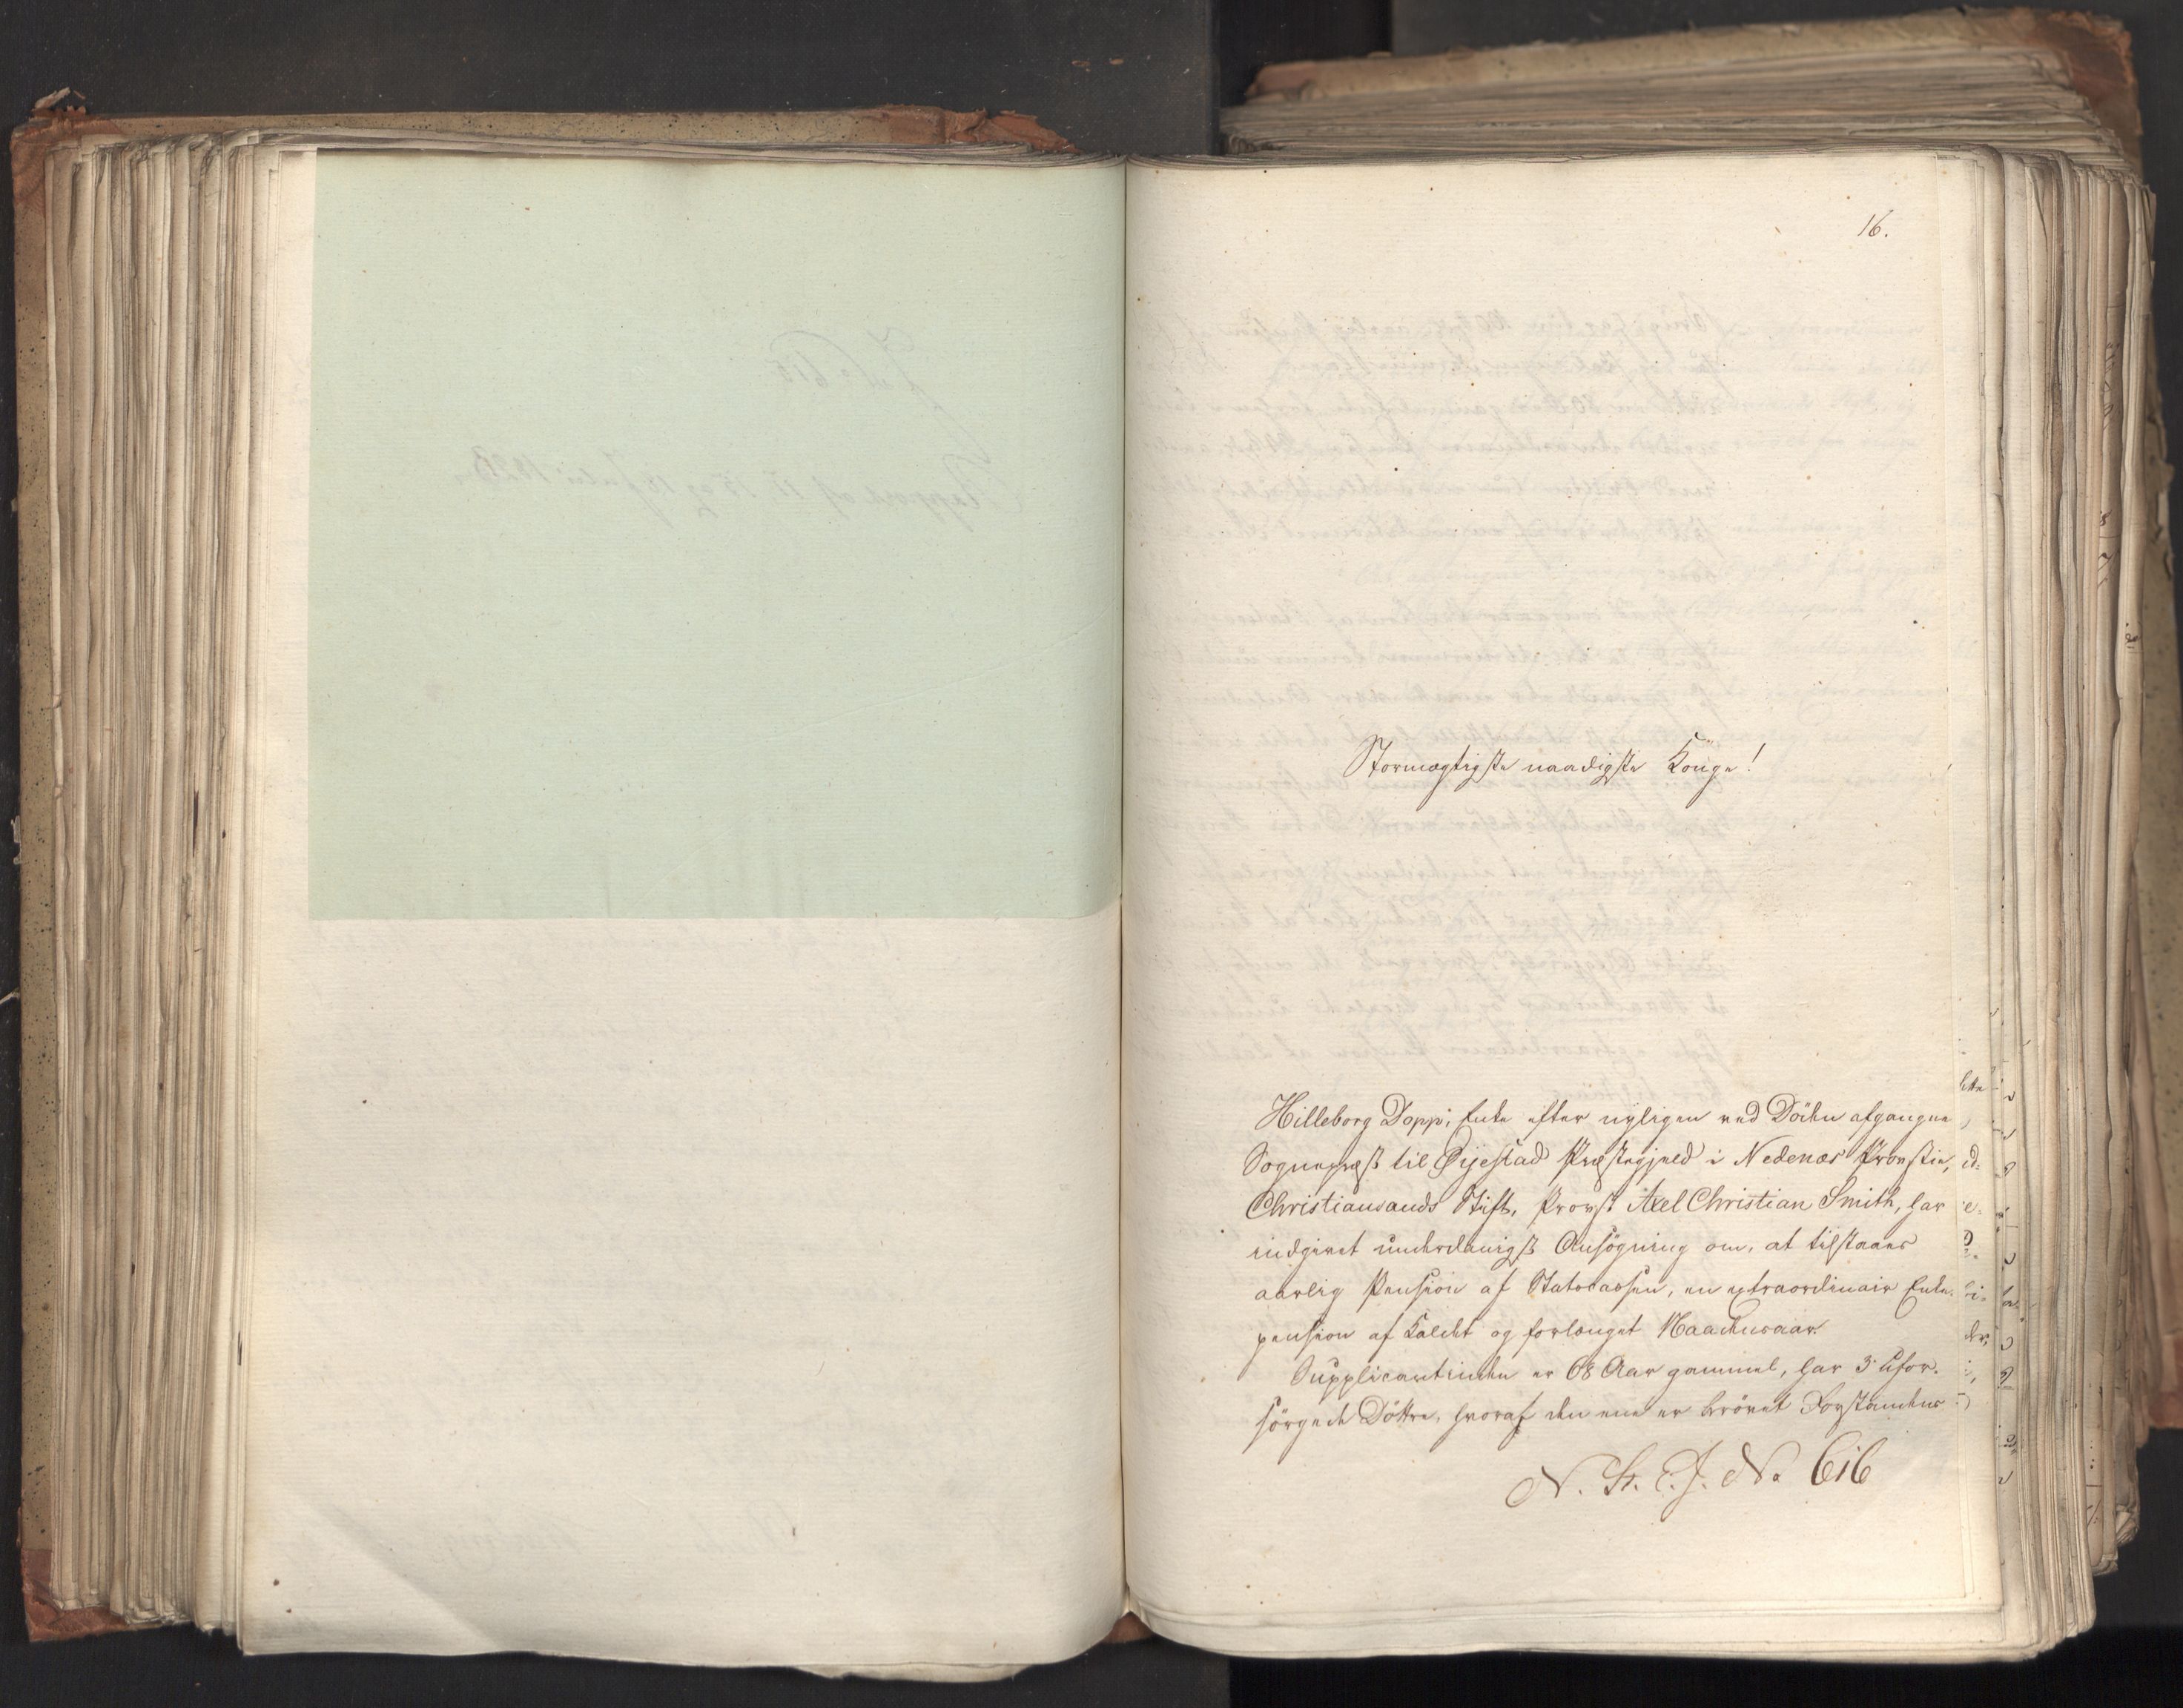 16.
Stormægtigste naadigste Konge!
Hilleborg Dopp, Enke efter nyligen ved Döden afgangne
Sognepræst til Øijestad Præstegjeld i Nedenæs Provstie,
Christiansands Stift, Provst Axel Christian Smith, har
indgivet underdanigst Ansögning om, at tilstaaes
aarlig Pension af Statscassen, en extraordinair Enke-
pension af Kaldet og forlænget Naadensaar.
Supplicantinden er 68 Aar gammel, har 3 ufor-
sörgede Döttre, hvoraf den ene er berövet Forstandens
N. St. E. J. No 616